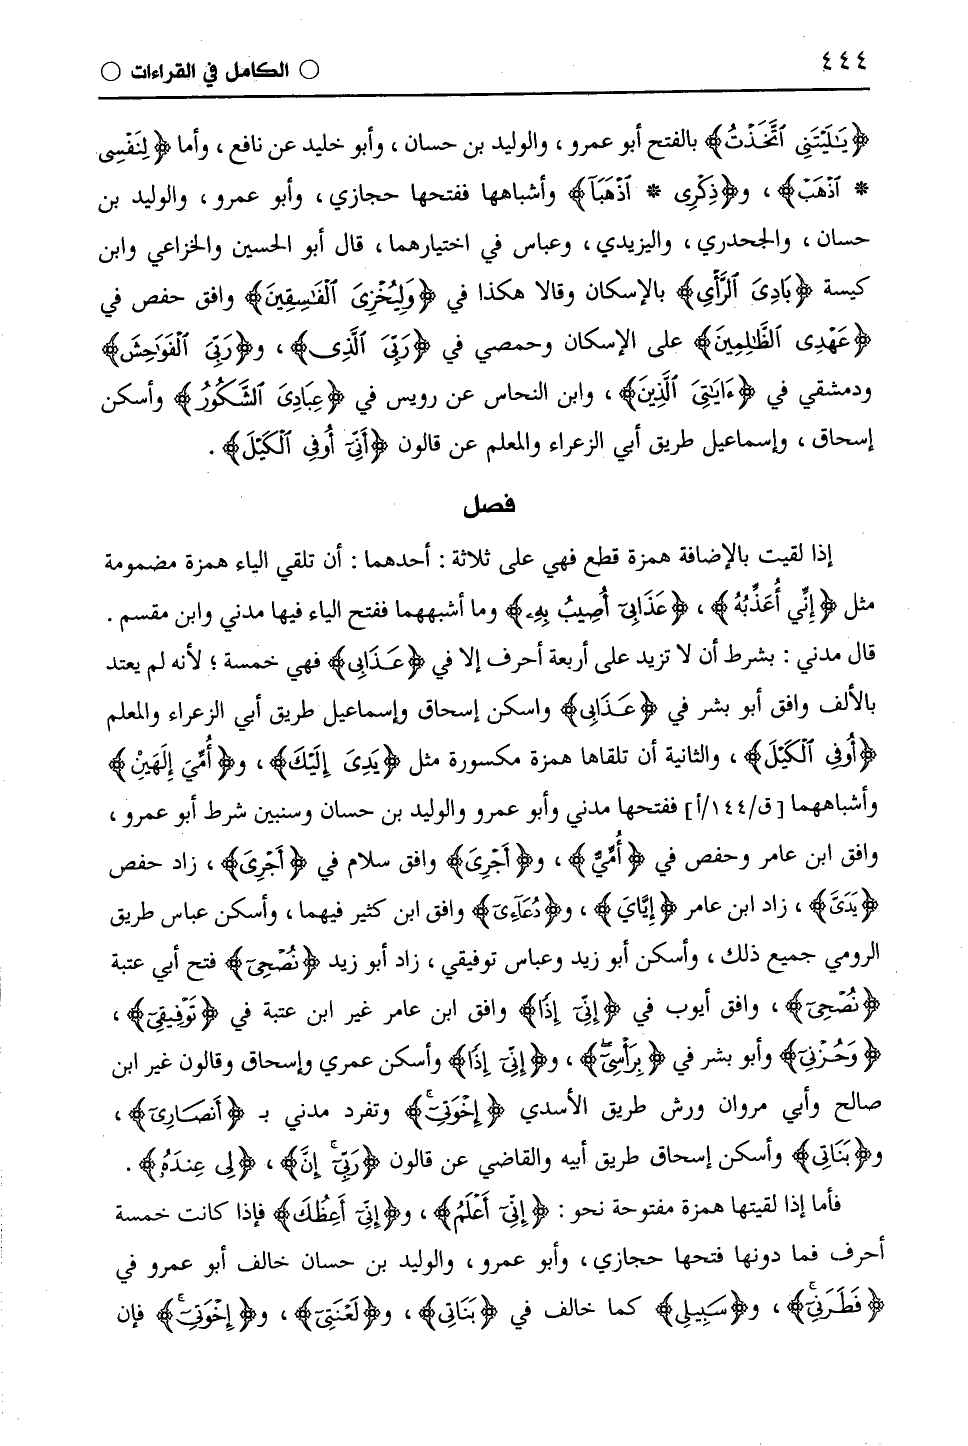 ٤٤٤
○ الكامل في القراءات ○
﴿يَٰلَيْتَنِي ٱتَّخَذْتُ﴾ بالفتح أبو عمرو ، والوليد بن حسان ، وأبو خليد عن نافع ، وأما ﴿لِنَفْسِي
* ٱذْهَبْ﴾ ، و﴿ذِكْرِي * ٱذْهَبَآ﴾ وأشباهها ففتحها حجازي ، وأبو عمرو ، والوليد بن
حسان ، والجحدري ، واليزيدي ، وعباس في اختيارهما ، قال أبو الحسين والخزاعي وابن
كيسة ﴿بَادِيَ ٱلرَّأْيِ﴾ بالإسكان وقالا هكذا في ﴿وَلِيُخْزِيَ ٱلْفَٰسِقِينَ﴾ وافق حفص في
﴿عَهْدِى ٱلظَّٰلِمِينَ﴾ على الإسكان وحمصي في ﴿رَبِّيَ ٱلَّذِى﴾ ، و﴿رَبِّيَ ٱلْفَوَٰحِشَ﴾
ودمشقي في ﴿ءَايَٰتِيَ ٱلَّذِينَ﴾ ، وابن النحاس عن رويس في ﴿عِبَادِيَ ٱلشَّكُورُ﴾ وأسكن
إسحاق ، وإسماعيل طريق أبي الزعراء والمعلم عن قالون ﴿أَنِّيٓ أُوفِي ٱلْكَيْلَ﴾ .
فصل
إذا لقيت بالإضافة همزة قطع فهي على ثلاثة : أحدهما : أن تلقي الياء همزة مضمومة
مثل ﴿إِنِّي أُعَذِّبُهُ﴾ ، ﴿عَذَابِيٓ أُصِيبُ بِهِۦ﴾ وما أشبههما ففتح الياء فيها مدني وابن مقسم .
قال مدني : بشرط أن لا تزيد على أربعة أحرف إلا في ﴿عَذَابِى﴾ فهي خمسة ؛ لأنه لم يعتد
بالألف وافق أبو بشر في ﴿عَذَابِى﴾ واسكن إسحاق وإسماعيل طريق أبي الزعراء والمعلم
﴿أُوفِي ٱلْكَيْلَ﴾ ، والثانية أن تلقاها همزة مكسورة مثل ﴿يَدِىَ إِلَيْكَ﴾ ، و﴿أُمِّيَ إِلَهَيْنِ﴾
وأشباههما [ق/١٤٤/أ] ففتحها مدني وأبو عمرو والوليد بن حسان وسنبين شرط أبو عمرو ،
وافق ابن عامر وحفص في ﴿أُمِّيَ﴾ ، و﴿أَجْرِيَ﴾ وافق سلام في ﴿أَجْرِيَ﴾ ، زاد حفص
﴿يَدَىَّ﴾ ، زاد ابن عامر ﴿إِيَّايَ﴾ ، و﴿دُعَآءِىٓ﴾ وافق ابن كثير فيهما ، وأسكن عباس طريق
الرومي جميع ذلك ، وأسكن أبو زيد وعباس توفيقي ، زاد أبو زيد ﴿نُصْحِىٓ﴾ فتح أبي عتبة
﴿نُصْحِىٓ﴾ ، وافق أيوب في ﴿إِنِّىٓ إِذًا﴾ وافق ابن عامر غير ابن عتبة في ﴿تَوْفِيقِىٓ﴾ ،
﴿وَحُزْنِىٓ﴾ وأبو بشر في ﴿بِرَأْسِىٓ﴾ ، و﴿إِنِّىٓ إِذًا﴾ وأسكن عمري وإسحاق وقالون غير ابن
صالح وأبي مروان ورش طريق الأسدي ﴿إِخْوَتِىٓ﴾ وتفرد مدني بـ ﴿أَنصَارِىٓ﴾ ،
و﴿بَنَاتِى﴾ وأسكن إسحاق طريق أبيه والقاضي عن قالون ﴿رَبِّىٓ إِنَّ﴾ ، ﴿لِى عِندَهُۥ﴾ .
فأما إذا لقيتها همزة مفتوحة نحو : ﴿إِنِّىٓ أَعْلَمُ﴾ ، و﴿إِنِّىٓ أَعِظُكَ﴾ فإذا كانت خمسة
أحرف فما دونها فتحها حجازي ، وأبو عمرو ، والوليد بن حسان خالف أبو عمرو في
﴿فَطَرَنِىٓ﴾ ، و﴿سَبِيلِى﴾ كما خالف في ﴿بَنَاتِى﴾ ، و﴿لَعْنَتِىٓ﴾ ، و﴿إِخْوَتِىٓ﴾ فإن